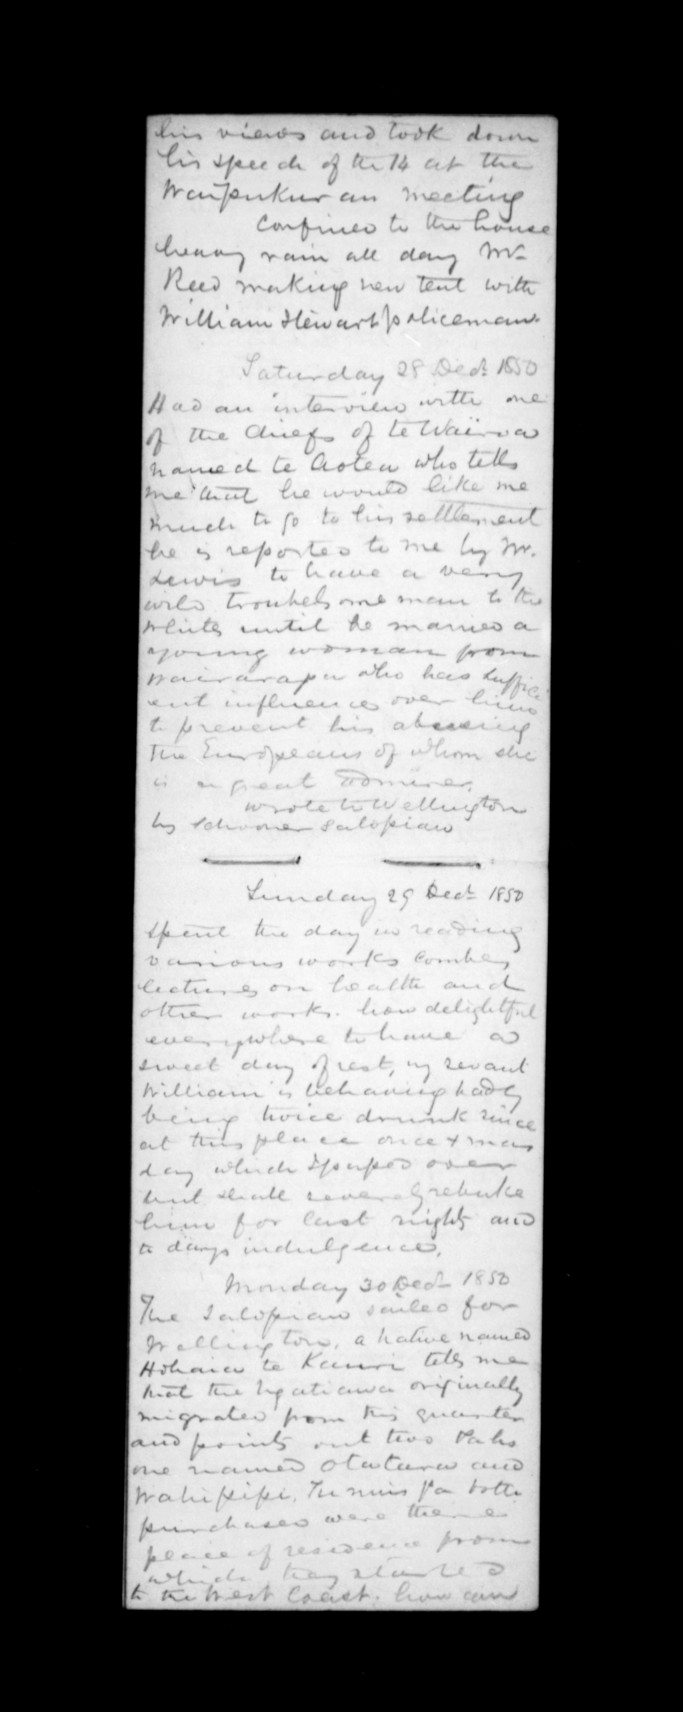 his views and took down
his speech of the 14 at the
Waipukurau meeting
Confined to the house
heavy rain all day Mr
Reed making new tent with
William Stewart policeman.
Saturday 28 Decr. 1850
Had an interview with one
of the chiefs of te Wairoa
named te Aotea who tells
me that he would like me
much to go to his settlement
he is reported to me by Mr.
Lewis to have a very
wild troublesome man to the
whites until he married a
young woman from
Wairarapa who has suffici
ent influence over him
to prevent his abusing
the Europeans of whom she
is a great admirer.
wrote to Wellington
by Schooner Salopian
Sunday 29 Decr 1850
spent the day in reading
various works Combes
lectures on health and
other works. how delightful
everywhere to have a
sweet day of rest, my servant
William is behaving badly
being twice drunk since
at this place once Xmas
day which I passed over
but shall severely rebuke
him for last nights and
to days indulgence.
Monday 30 Decr 1850
The Salopian sailed for
Wellington, a native named
Hohaia te tells me
that the Ngatiawa originally
migrated from this quarter
and points out two Pahs
one named Otatara and
Wahipipi. pa both
purchased were there
place of residence from
which they started
to the West Coast. how can